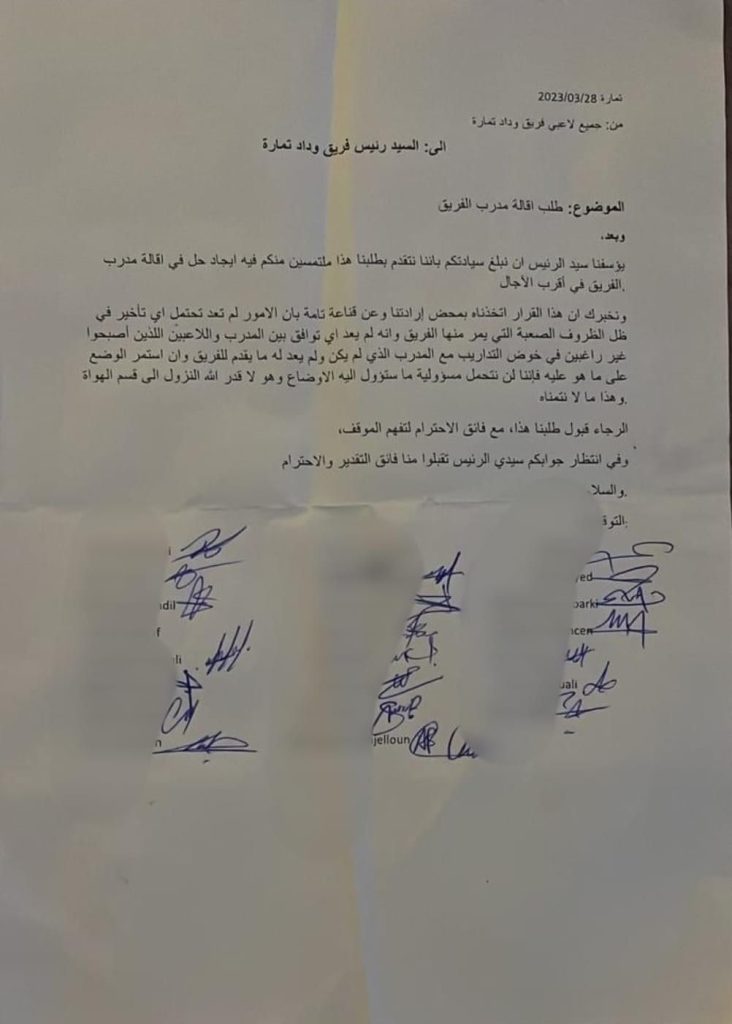 تمارة 2023/03/28
من: جميع لاعبي فريق وداد تمارة
الى: السيد رئيس فريق وداد تمارة
الموضوع: طلب اقالة مدرب الفريق
وبعد،
يؤسفنا سيد الرئيس ان نبلغ سيادتكم باننا نتقدم بطلبنا هذا ملتمسين منكم فيه ايجاد حل في اقالة مدرب
الفريق في أقرب الآجال.
ونخبرك ان هذا القرار اتخذناه بمحض إرادتنا وعن قناعة تامة بان الامور لم تعد تحتمل اي تأخير في
ظل الظروف الصعبة التي يمر منها الفريق وانه لم يعد اي توافق بين المدرب واللاعبين اللذين أصبحوا
غير راغبين في خوض التداريب مع المدرب الذي لم يكن ولم يعد له ما يقدم للفريق وان استمر الوضع
على ما هو عليه فإننا لن نتحمل مسؤولية ما ستؤول اليه الاوضاع وهو لا قدر الله النزول الى قسم الهواة
وهذا ما لا نتمناه.
الرجاء قبول طلبنا هذا، مع فائق الاحترام لتفهم الموقف،
وفي انتظار جوابكم سيدي الرئيس تقبلوا منا فائق التقدير والاحترام
والسلا.
التوة:
i
yed
dil
barki
f
cen
li
uali
n
jelloun